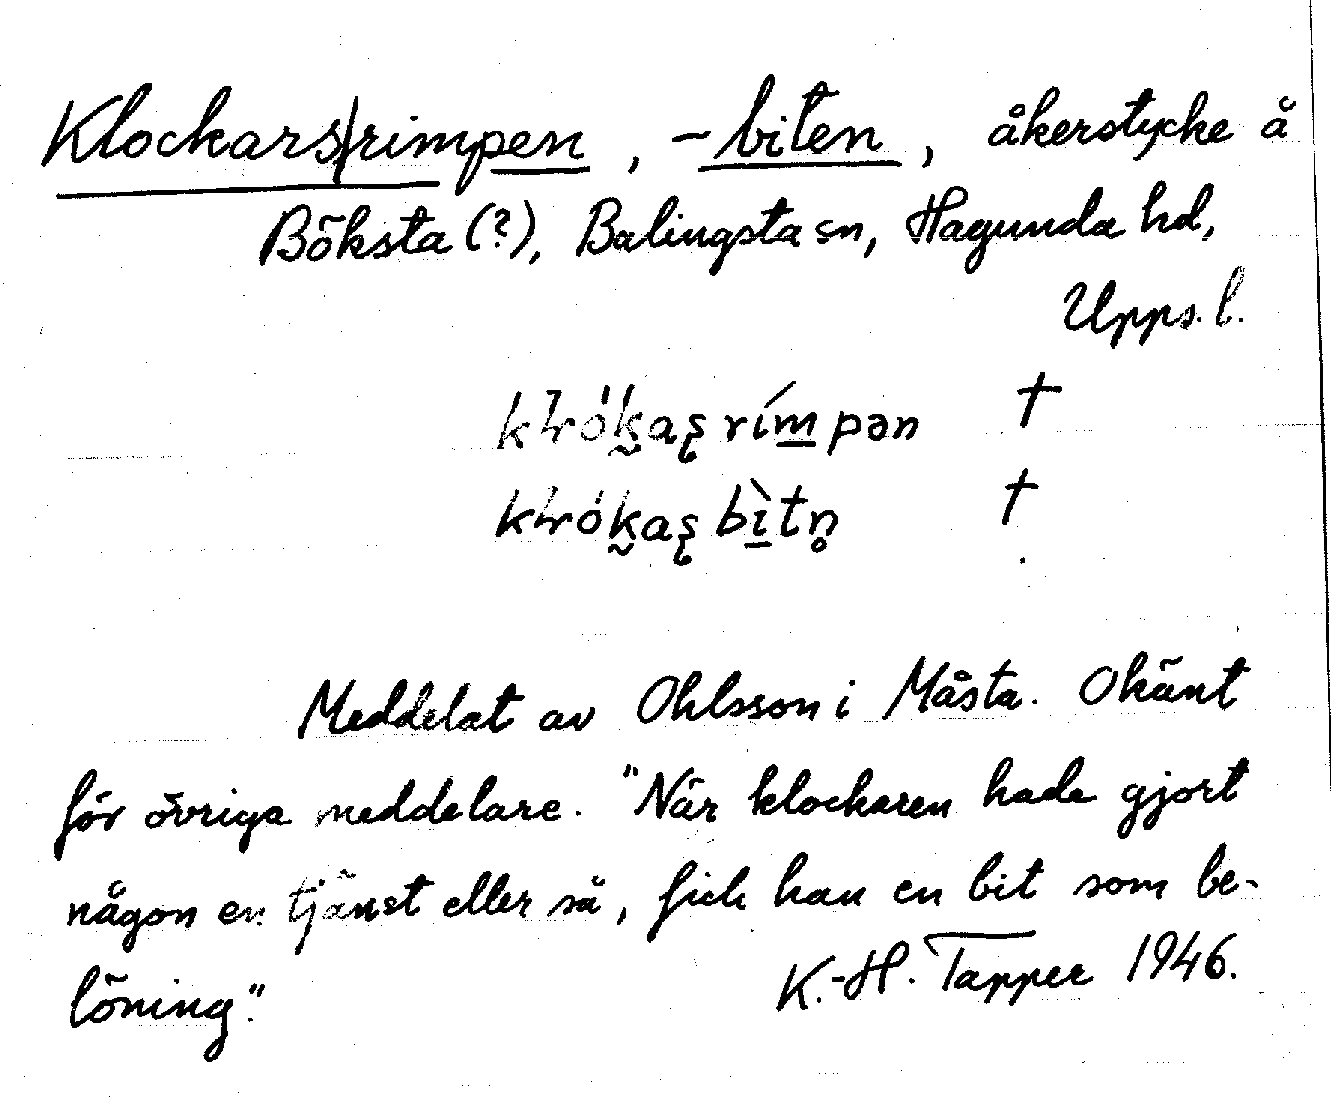 Klockars|rimpen, -biten, åkerstycke å
Böksta (?), Balingsta sn, Hagunda hd,
Upps. l.
†
†
Meddelat av Ohlsson i Måsta. Okänt
för övriga meddelare. "När klockaren hade gjort
någon en tjänst eller så, fick han en bit som be-
löning".
K.-H. Tapper 1946.